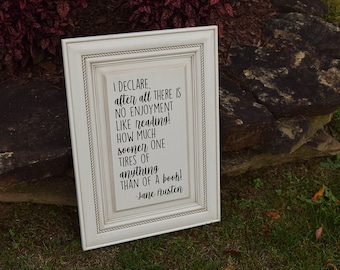 I DECLARE,
after all THERE IS
NO ENJOYMENT
LIKE reading!
HOW MUCH
sooner ONE
TIRES OF
anything
THAN OF A book!
-Jane Austen